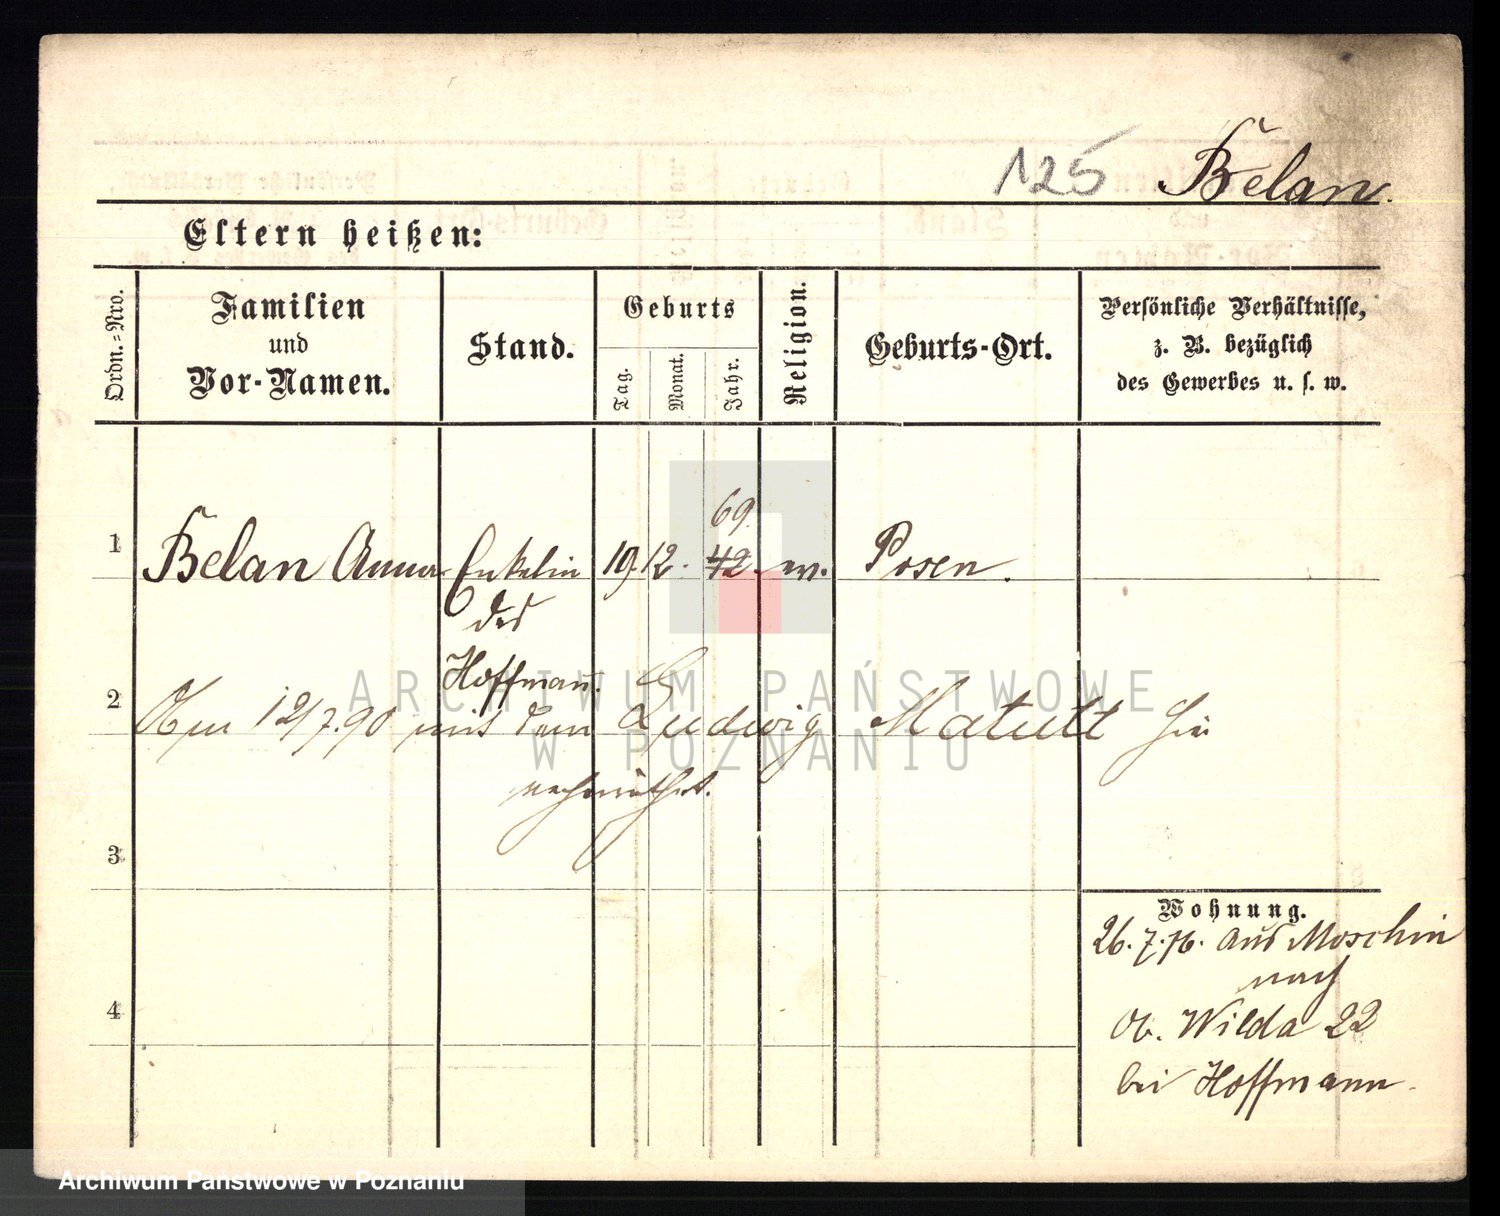 125 Belan.
Eltern heißen:
Ordn.-Nro.
Familien
und
Vor-Namen.
Stand.
Geburts
Tag.
Monat.
Jahr.
Religion.
Geburts-Ort.
Persönliche Verhältnisse,
z. B. bezüglich
des Gewerbes u. s. w.
69.
1 Belan Anna Enkelin 19. 12. 42 Posen.
des
Hoffmann.
2 12/7.90 mit dem Ludwig Matutt hier
3
4
Wohnung.
26. 7. 76. aus Moschin
nach
Ob. Wilda 22
bei Hoffmann.
ARCHIWUM PAŃSTWOWE
W POZNANIU
Archiwum Państwowe w Poznaniu